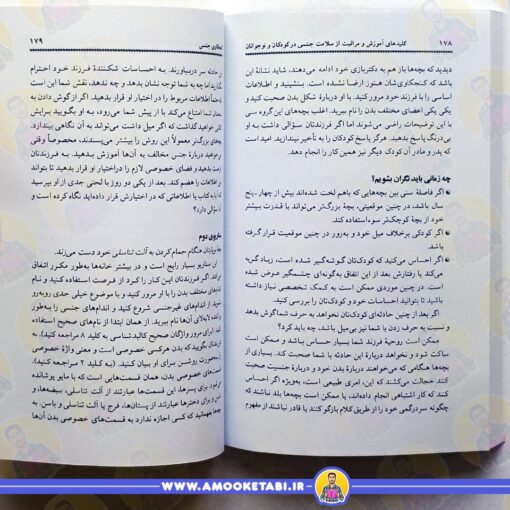 ۱۷۸
کلیدهای آموزش و مراقبت از سلامت جنسی در کودکان و نوجوانان
دیدید که بچه‌ها باز هم به دکتربازی خود ادامه می‌دهند، شاید نشانهٔ این
است که کنجکاوی‌شان هنوز ارضا نشده است. بنشینید و اطلاعات
اساسی را با فرزند خود مرور کنید. با او دربارهٔ شکل بدن صحبت کنید و
یکی یکی اعضای مختلف بدن را نام ببرید. اغلب بچه‌های این‌گروه سنی
با این توضیحات راضی می‌شوند اما اگر فرزندتان سؤالی داشت به او
بی‌درنگ پاسخ بدهید. هرگز پاسخ کودکان را به تأخیر نیندازید. امید است
که پدر و مادر آن کودک دیگر نیز همین کار را انجام دهد.
چه زمانی باید نگران بشویم؟
اگر فاصلهٔ سنی بین بچه‌هایی که باهم لخت شده‌اند بیش از چهار ـ پنج
سال باشد. در چنین موقعیتی، بچهٔ بزرگ‌تر می‌تواند با قدرت بیشتر
خود از بچهٔ کوچک‌تر سوء استفاده کند.
اگر کودکی برخلاف میل خود و به‌زور در چنین موقعیت قرار گرفته
باشد.
اگر احساس می‌کنید که کودک‌تان گوشه‌گیر شده است، زیاد گریه
می‌کند یا رفتارش بعد از این اتفاق به‌گونه‌ای چشمگیر عوض شده
است. در چنین موردی ممکن است به کمک تخصصی نیاز داشته
باشید تا بتوانید احساسات خود و کودک‌تان را بررسی کنید.
اگر بعد از چنین حادثه‌ای کودک‌تان نخواهد به حرف شما گوش بدهد
و نسبت به حرف زدن با شما نیز بی‌میل باشد، چه باید کرد؟
ممکن است روحیهٔ فرزند شما بسیار حساس باشد و ممکن است
ساکت شود و نخواهد دربارهٔ این حادثه با شما صحبت کند. بسیاری از
بچه‌ها هنگامی که می‌خواهند دربارهٔ بدن خود و یا دربارهٔ جنسیت صحبت
کنند خجالت می‌کشند که این، امری طبیعی است، به‌ویژه اگر احساس
کنند که کار اشتباهی انجام داده‌اند، یا ممکن است بچه‌ها بلد نباشند که
چگونه سردرگمی خود را از طریق کلام بازگو کنند یا قادر نباشند از مفهوم
جنسی
۱۷۹
حادثه سر دربیاورند. به احساسات شکنندهٔ فرزند خود احترام
اما چه به شما توجه نشان بدهد و چه ندهد، نقش شما این است
اطلاعات مربوط را در اختیار او قرار بدهید. اگر از گوش دادن به
شما امتناع می‌کند یا از پیش شما می‌رود، به او بگویید برایش
خواهید گذاشت که اگر میل داشت می‌تواند به آن نگاهی بیندازد.
بزرگ‌تر معمولاً این روش را بیشتر می‌پسندند، مخصوصاً وقتی
دربارهٔ جنس مخالف به آن‌ها آموزش بدهید. به فرزندتان
فرصت بدهید و فضای خصوصی لازم را دراختیار او قرار بدهید تا بتواند
اطلاعات را هضم کند. بعد از یکی دو روز با لحنی جدی از او بپرسید
به کتاب یا اطلاعاتی که در اختیارش قرار داده بودید نگاه کرده است
سؤالی دارد؟
سناریوی دوم
هنگام حمام کردن به آلت تناسلی خود دست می‌زند.
سناریو بسیار رایج است و در بیشتر خانه‌ها به‌طور مکرر اتفاق
اگر فرزندتان این کار را کرد از فرصت استفاده کنید و نام
مختلف بدن را با او مرور کنید و با موضوع خیلی جدی روبه‌رو
از اندام‌های غیرجنسی شروع کنید و اندام‌های جنسی را به‌طور
لابه‌لای آن‌ها نام ببرید. از همان ابتدا از نام‌های صحیح استفاده
(برای مرور واژگان صحیح کالبدشناسی به کلید ۸ مراجعه کنید.) به
بگویید که بدن هرکسی خصوصی است و معنی واژهٔ خصوصی
به‌صورت روشن برای او بیان کنید. (به کلید ۲ مراجعه کنید).
خصوصی بدن، همان قسمت‌هایی است که با مایو پوشانده
برای پسرها این قسمت‌ها عبارتند از آلت تناسلی، بیضه‌ها، و
برای دخترها عبارتند از پستان‌ها، فرج یا آلت تناسلی و باسن. به
بفهمانید که کسی اجازه ندارد به قسمت‌های خصوصی بدن آن‌ها
WWW.AMOOKETABI.IR